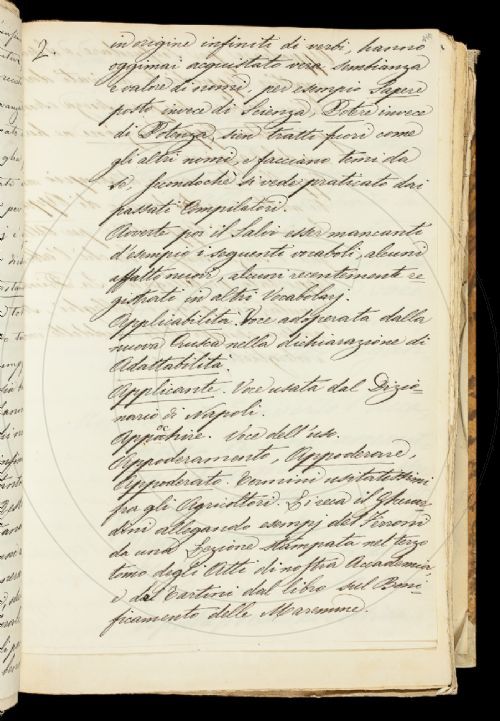 2.
in origine infiniti di verbi, hanno
oggimai acquistato vera sembianza
e valore di nomi, per esempio Sapere
posto invece di Scienza, Potere invece
di Potenza, sien tratti fuori come
gli altri nomi, e facciano temi da
se, secondochè si vede praticato dai
passati Compilatori.
Avverte poi il Salvi esser mancante
d'esempio i seguenti vocaboli, alcuni
affatto nuovi, alcuni recentemente re-
gistrati in altri Vocabolarj.
Applicabilità. Voce adoperata dalla
nuova Crusca nella dichiarazione di
Adattabilità.
Applicante. Voce usata dal Dizio-
nario di Napoli.
Appochire. Voce dell'uso.
Appoderamento, Appoderare,
Appoderato. Termini usitatissimi
fra gli Agricoltori. Li reca il Gherar-
dini allegando esempj del Ferroni
da una Lezione stampata nel terzo
tomo degli Atti di nostra Accademia
e dal Tartini dal libro sul Boni-
ficamento delle Maremme.